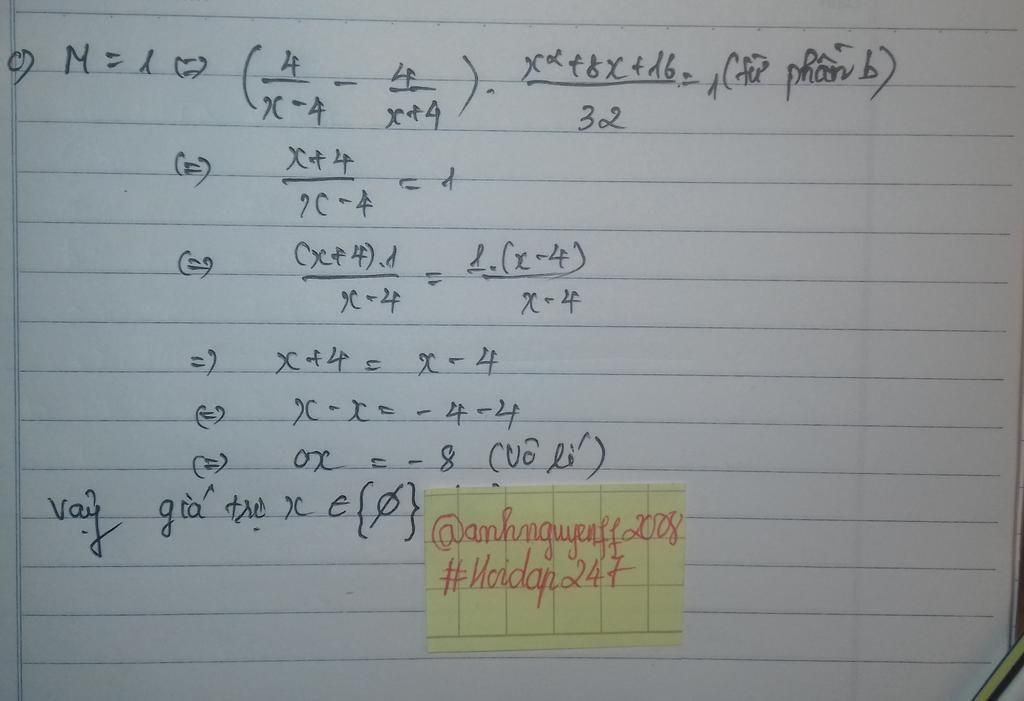 c) M = 1 <=> (4/(x-4) - 4/(x+4)) . (x²+8x+16)/32 = 1 (từ phần b)
<=> (x+4)/(x-4) = 1
<=> ((x+4).1)/(x-4) = (1.(x-4))/(x-4)
=> x+4 = x-4
<=> x-x = -4-4
<=> 0x = -8 (Vô lí)
Vậy giá trị x ∈ {∅}
@anhnguyenff2008
#Hoidap247